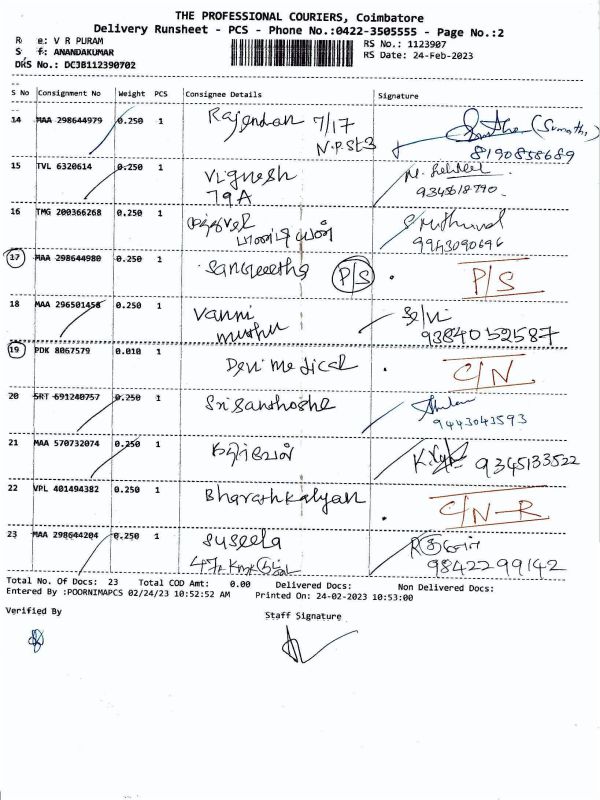 THE PROFESSIONAL COURIERS, Coimbatore
Delivery Runsheet - PCS - Phone No.:0422-3505555 - Page No.:2
e: V R PURAM
RS No.: 1123907
f: ANANDAKUMAR
RS Date: 24-Feb-2023
DRS No.: DCJB112390702
S No Consignment No Weight PCS Consignee Details Signature
14 MAA 298644979 0.250 1 Rajendran 7/17 (Sumathi)
N.P.St3 8190858689
15 TVL 6320614 0.250 1 Vignesh
79A 9345618790
16 TMG 200366268 0.250 1 S Muthuvel
பாண்டியன் 9943090696
17 MAA 298644980 0.250 1 Sangeetha P/S P/S
18 MAA 296501458 0.250 1 Vanni Selvi
muthu 9384052587
19 PDK 8067579 0.010 1 Devi medical C/N
20 SRT 691240757 0.250 1 Sri Santhoshe
9443043593
21 MAA 570732074 0.250 1 கதிர்வேல் 9345133522
22 VPL 401494382 0.250 1 Bharathkalyan C/N-R
23 MAA 298644204 0.250 1 Suseela
9842299142
Total No. Of Docs: 23 Total COD Amt: 0.00 Delivered Docs: Non Delivered Docs:
Entered By :POORNIMAPCS 02/24/23 10:52:52 AM Printed On: 24-02-2023 10:53:00
Verified By Staff Signature